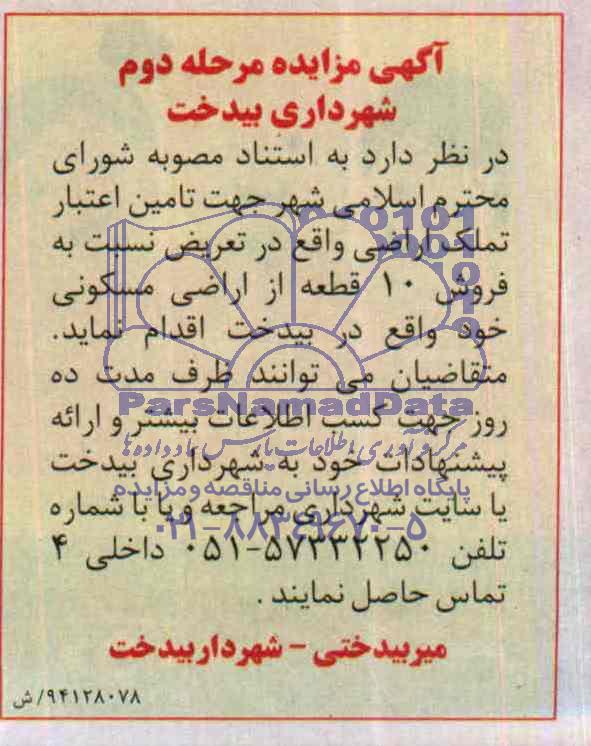 آگهی مزایده مرحله دوم
شهرداری بیدخت
در نظر دارد به استناد مصوبه شورای
محترم اسلامی شهر جهت تامین اعتبار
تملک اراضی واقع در تعریض نسبت به
فروش ۱۰ قطعه از اراضی مسکونی
خود واقع در بیدخت اقدام نماید.
متقاضیان می توانند ظرف مدت ده
ParsNamadData
روز جهت کسب اطلاعات بیشتر و ارائه
مرکز فرآوری اطلاعات پارس نماد داده ها
پیشنهادات خود به شهرداری بیدخت
پایگاه اطلاع رسانی مناقصه و مزایده
یا سایت شهرداری مراجعه و یا با شماره
۰۲۱-۸۸۳۴۹۶۷۰-۵
تلفن ۰۵۱-۵۷۲۳۲۲۵۰ داخلی ۴
تماس حاصل نمایند .
میربیدختی - شهردار بیدخت
۹۴۱۲۸۰۷۸/ش